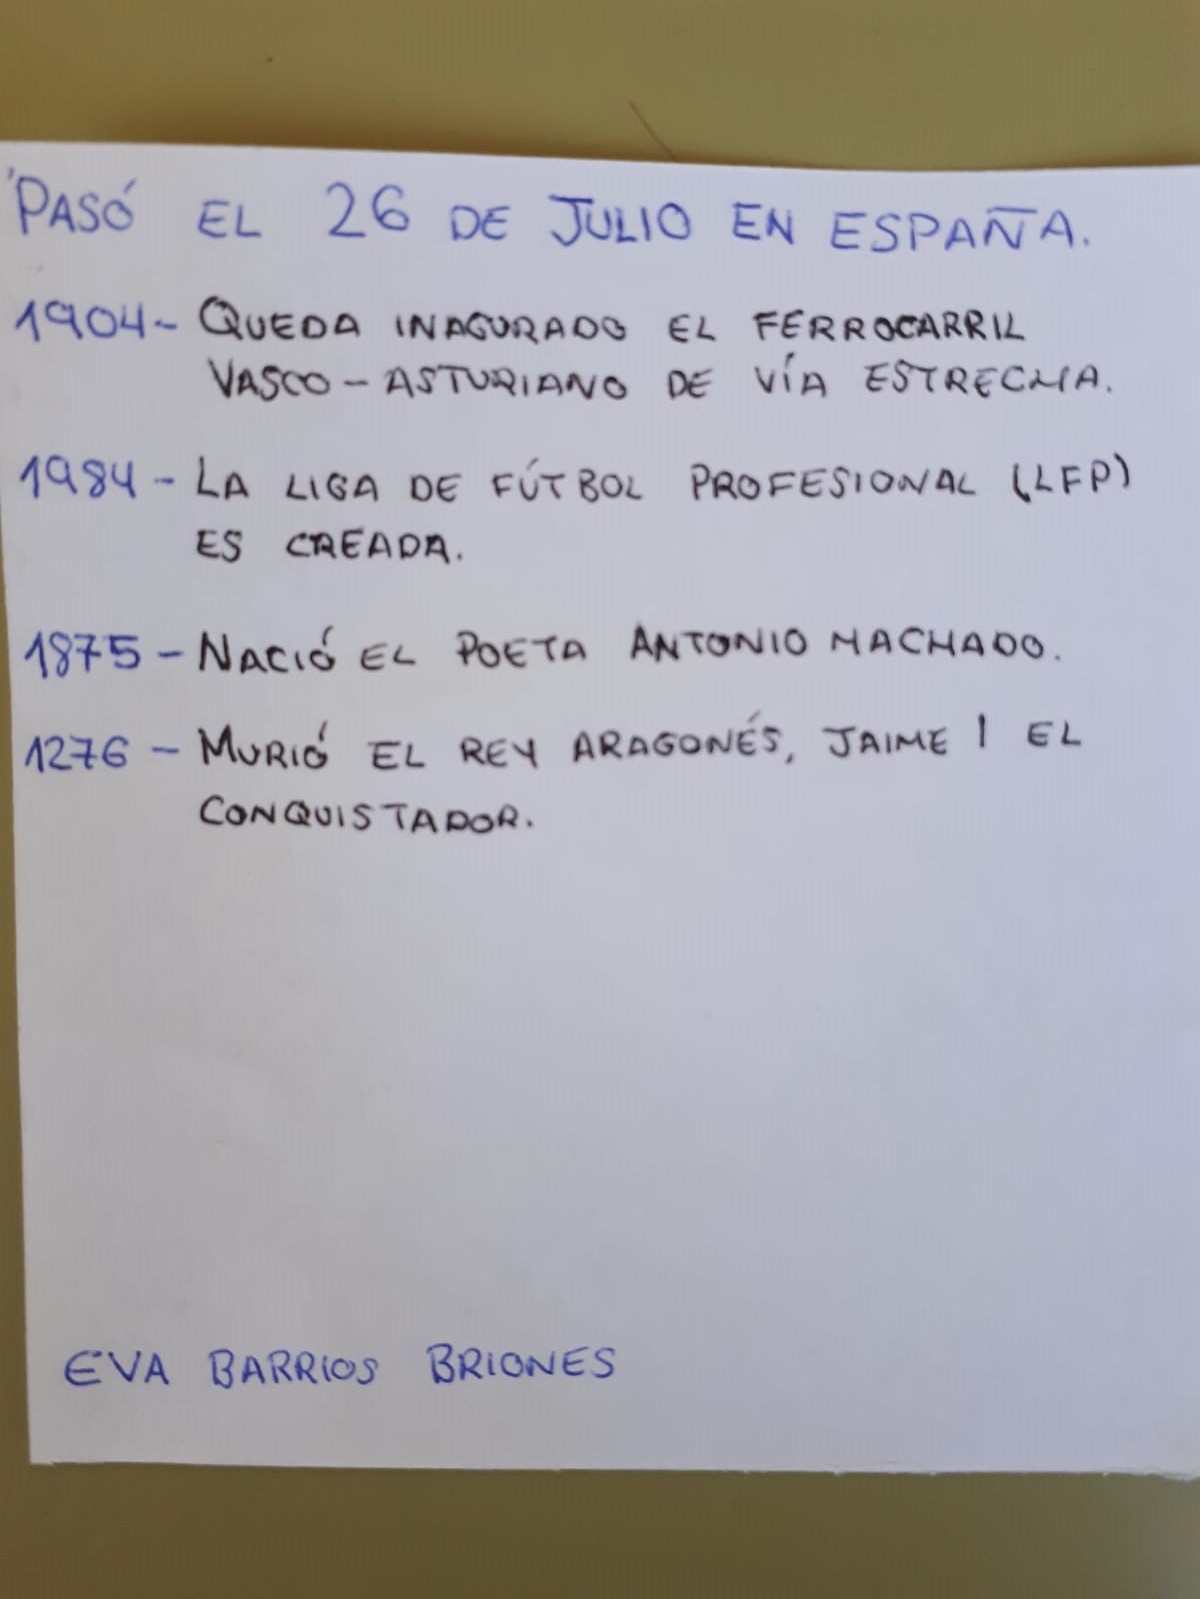 PASÓ EL 26 DE JULIO EN ESPAÑA.
1904- QUEDA INAGURADO EL FERROCARRIL
VASCO-ASTURIANO DE VÍA ESTRECHA.
1984- LA LIGA DE FÚTBOL PROFESIONAL (LFP)
ES CREADA.
1875- NACIÓ EL POETA ANTONIO MACHADO.
1276- MURIÓ EL REY ARAGONÉS, JAIME I EL
CONQUISTADOR.
EVA BARRIOS BRIONES